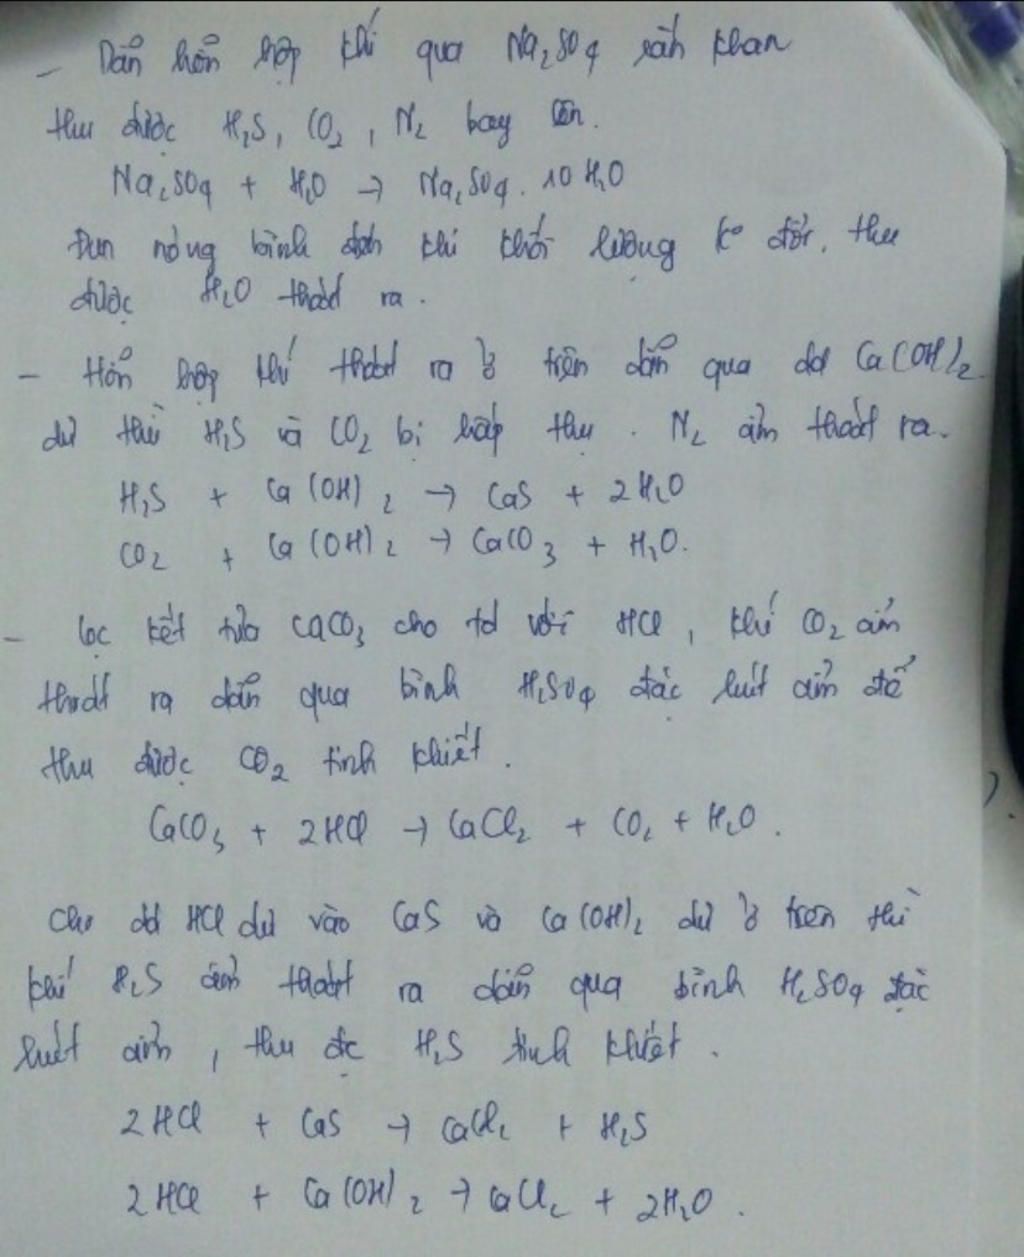 - Dẫn hỗn hợp khí qua Na₂SO₄ rắn khan
thu được H₂S, CO₂, N₂ bay lên.
Na₂SO₄ + H₂O → Na₂SO₄.10H₂O
Đun nóng bình đến khi khối lượng ko đổi, thu
được H₂O thoát ra.
- Hỗn hợp khí thoát ra ở trên dẫn qua dd Ca(OH)₂
dư thì H₂S và CO₂ bị hấp thụ. N₂ ẩm thoát ra.
H₂S + Ca(OH)₂ → CaS + 2H₂O
CO₂ + Ca(OH)₂ → CaCO₃ + H₂O.
- lọc kết tủa CaCO₃ cho td với HCl, khí CO₂ ẩm
thoát ra dẫn qua bình H₂SO₄ đặc hút ẩm để
thu được CO₂ tinh khiết.
CaCO₃ + 2HCl → CaCl₂ + CO₂ + H₂O.
Cho dd HCl dư vào CaS và Ca(OH)₂ dư ở trên thì
khí H₂S ẩm thoát ra dẫn qua bình H₂SO₄ đặc
hút ẩm, thu đc H₂S tinh khiết.
2HCl + CaS → CaCl₂ + H₂S
2HCl + Ca(OH)₂ → CaCl₂ + 2H₂O.